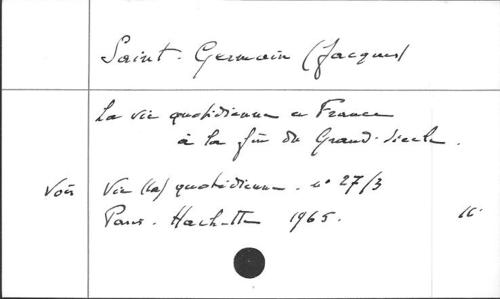 Saint-Germain (Jacques)
La vie quotidienne en France
à la fin du Grand-siècle.
Voir Vie (la) quotidienne. n° 27/3
Paris. Hachette 1965. 16°